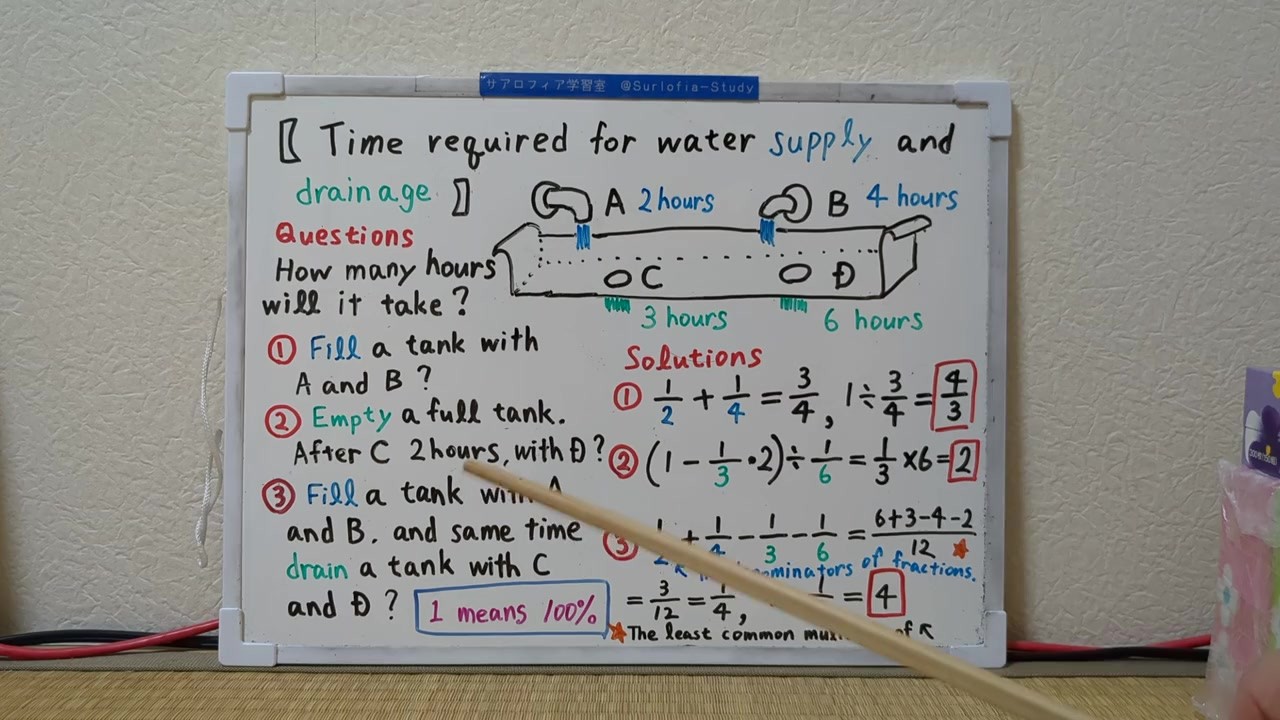 サアロフィア学習室 @Surlofia-Study
【 Time required for water supply and
drainage 】
A 2 hours
B 4 hours
C
D
3 hours
6 hours
Questions
How many hours
will it take?
① Fill a tank with
A and B?
② Empty a full tank.
After C 2 hours, with D?
③ Fill a tank with A
and B, and same time
drain a tank with C
and D?
1 means 100%
Solutions
① 1/2 + 1/4 = 3/4, 1÷3/4 = 4/3
② (1 - 1/3 • 2) ÷ 1/6 = 1/3 × 6 = 2
③ + 1/4 - 1/3 - 1/6 = 6+3-4-2/12 ★
denominators of fractions.
= 3/12 = 1/4, = 4
★ The least common of ↖